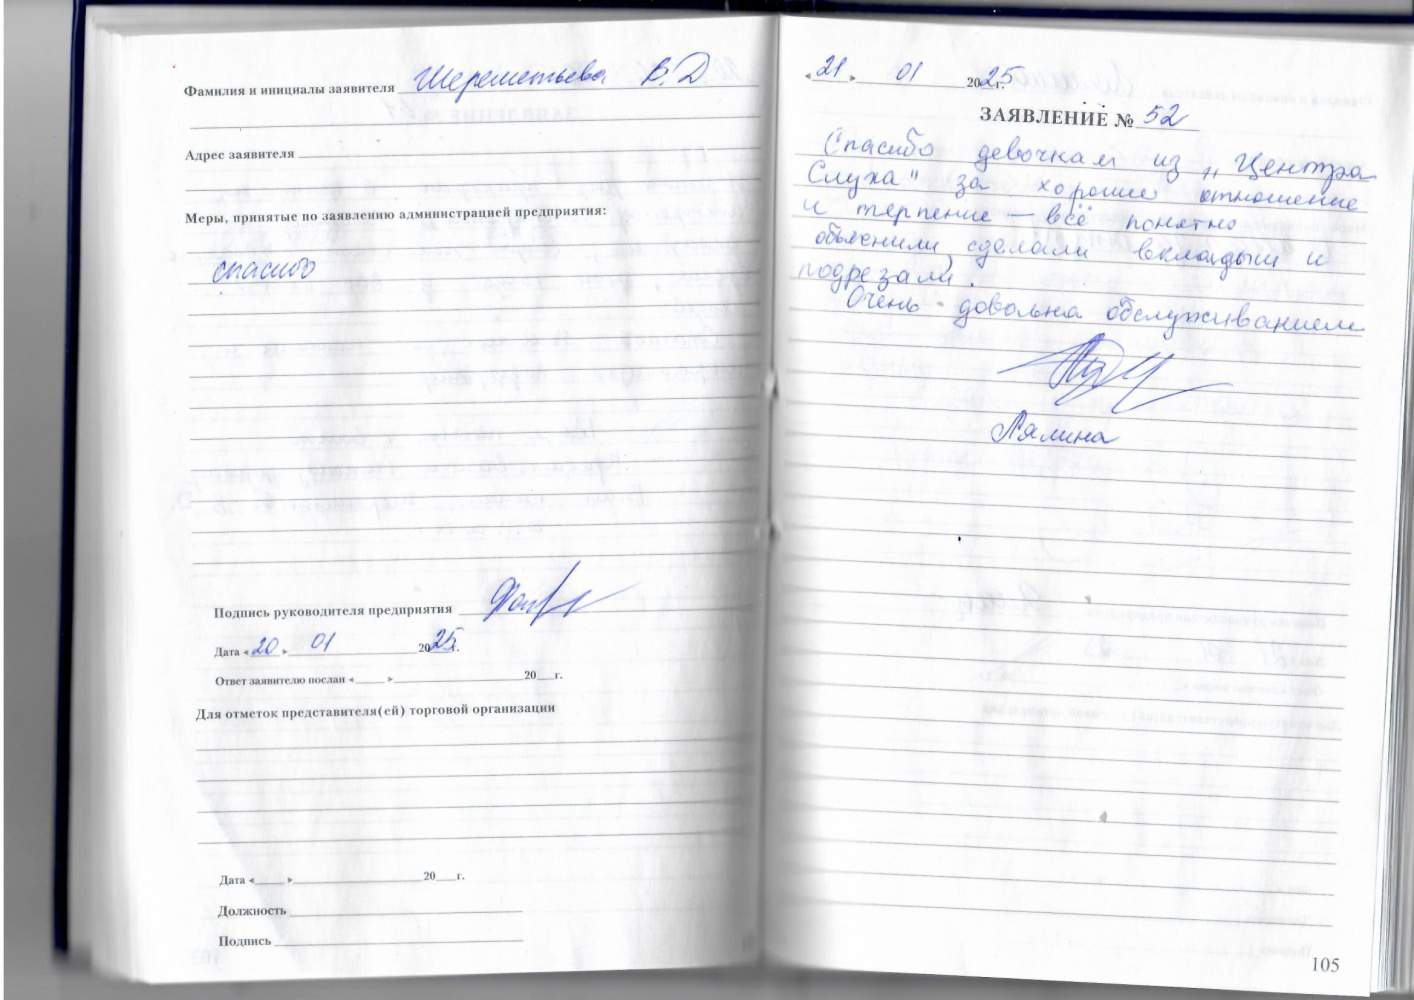 Фамилия и инициалы заявителя Шереметьева В.Д
Адрес заявителя
Меры, принятые по заявлению администрацией предприятия:
спасибо
Подпись руководителя предприятия
Дата « 20 » 01 2025г.
Ответ заявителю послан « » 20 г.
Для отметок представителя(ей) торговой организации
Дата « » 20 г.
Должность
Подпись
« 21 » 01 2025г.
ЗАЯВЛЕНИЕ № 52
Спасибо девочкам из „Центра
Слуха" за хорошие отношение
и терпение – всё понятно
объяснили, сделали вкладыши и
подрезали.
Очень довольна обслуживанием
Лялина
105